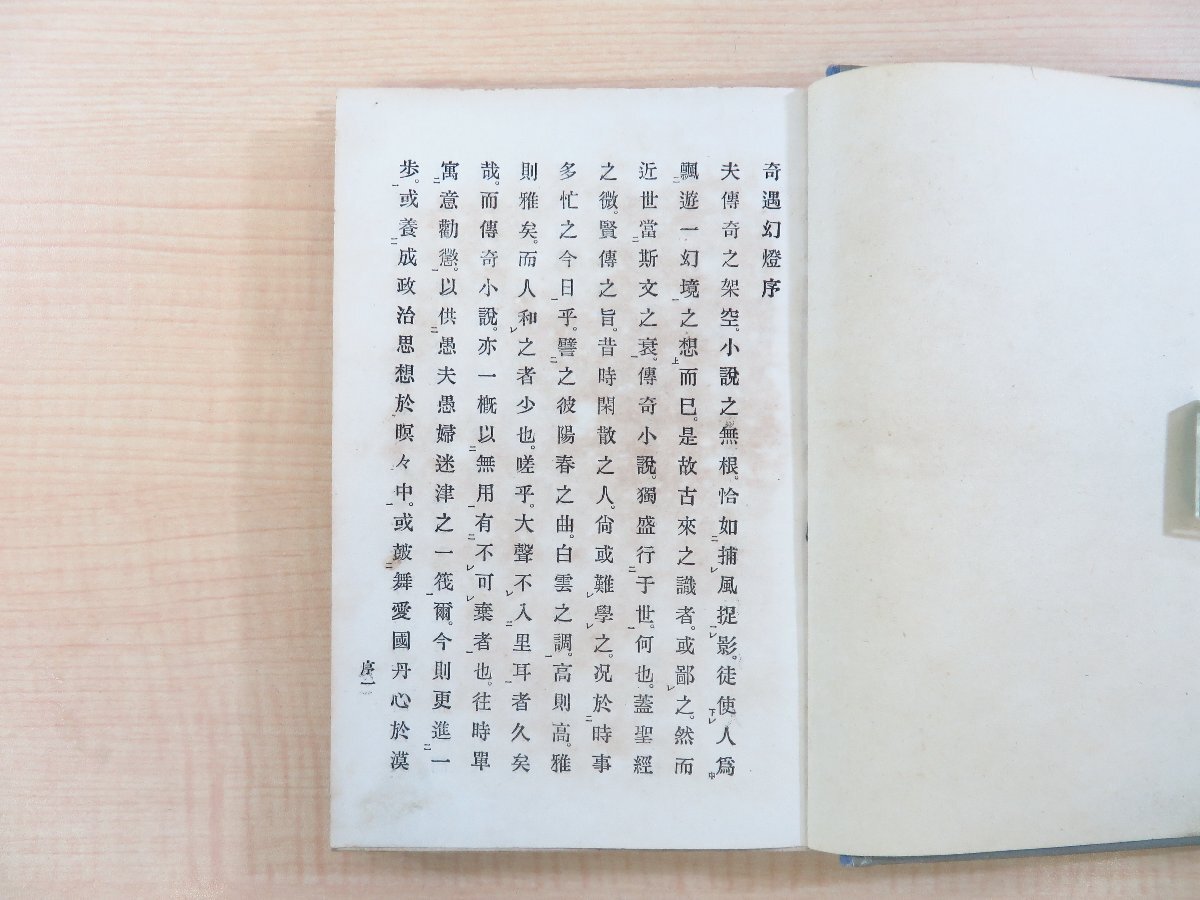 奇遇幻燈序
夫傳奇之架空。小說之無根。恰如捕風捉影。徒使人爲
飄遊一幻境之想而已。是故古來之識者。或鄙之。然而
近世當斯文之衰。傳奇小說。獨盛行于世。何也。蓋聖經
之微。賢傳之旨。昔時閑散之人。尙或難學之。况於時事
多忙之今日乎。譬之彼陽春之曲。白雲之調。高則高。雅
則雅矣。而人和之者少也。嗟乎。大聲不入里耳者久矣
哉。而傳奇小說。亦一概以無用有不可棄者也。往時單
寓意勸懲。以供愚夫愚婦迷津之一筏爾。今則更進一
步。或養成政治思想於暝々中。或皷舞愛國丹心於漠
序一